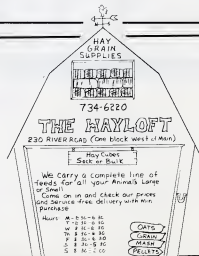 HAY
GRAIN
SUPPLIES
734-6220
THE HAYLOFT
230 RIVER ROAD (one block west of Main)
Hay Cubes
Sack or Bulk
We Carry a complete line of
feeds for all your Animals Large
or Small
Come on in and check our prices
and Service free delivery with Min
Purchase
Hours
M -
T -
W
Th
F
S
S
OATS
GRAIN
MASH
PELLETS